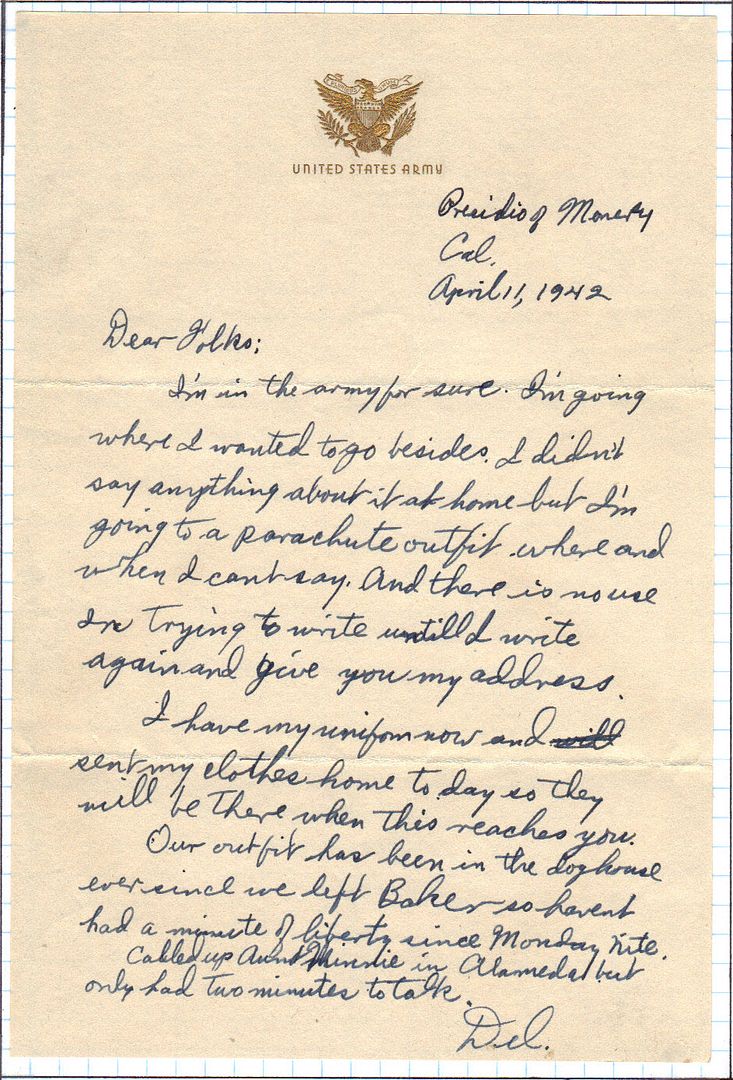 UNITED STATES ARMY
Presidio of Monery
Cal.
April 11, 1942
Dear Folks:
I'm in the army for sure. I'm going
where I wanted to go besides. I didn't
say anything about it at home but I'm
going to a parachute outfit. where and
when I can't say. And there is no use
in trying to write untill I write
again and give you my address.
I have my uniform now and will
sent my clothes home to day so they
will be there when this reaches you.
Our outfit has been in the doghouse
ever since we left Baker so havent
had a minute of liberty since Monday nite.
Called up Aunt Minnie in Alameda but
only had two minutes to talk.
Del.